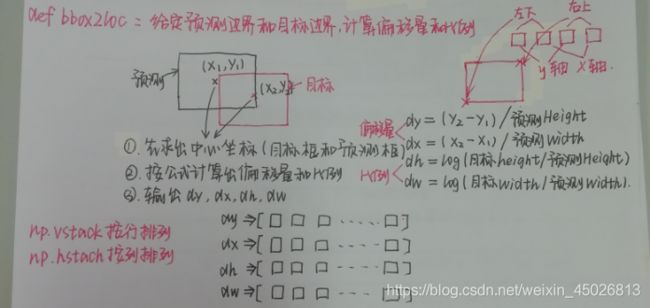 def bbox2loc：给定预测边界和目标边界,计算偏移量和比例
左下 右上
y轴 x轴
预测
(X₁,Y₁)
(X₂,Y₂)
目标
偏移量
dy = (Y₂-Y₁)/预测Height
dx = (X₂-X₁)/预测Width
比例
dh = log(目标height/预测Height)
dw = log(目标Width/预测Width).
①.先求出中心坐标(目标框和预测框)
②.按公式计算出偏移量和比例
③.输出dy,dx,dh,dw
np.vstack按行排列
np.hstach按列排列
dy⇒[ ····· ]
dx⇒[ ····· ]
dh⇒[ ····· ]
dw⇒[ ····· ]
https://blog.csdn.net/weixin_45026813